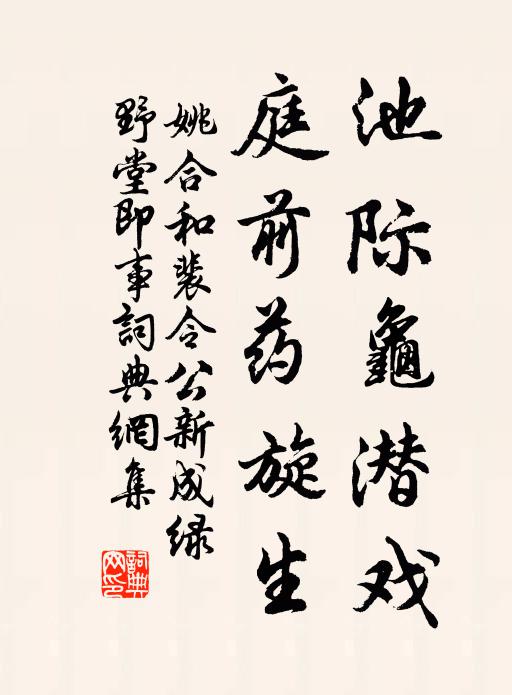 池际龜潜戏
庭前药旋生
姚合和裴令公新成绿
野堂即事詞典網集
詞典網印